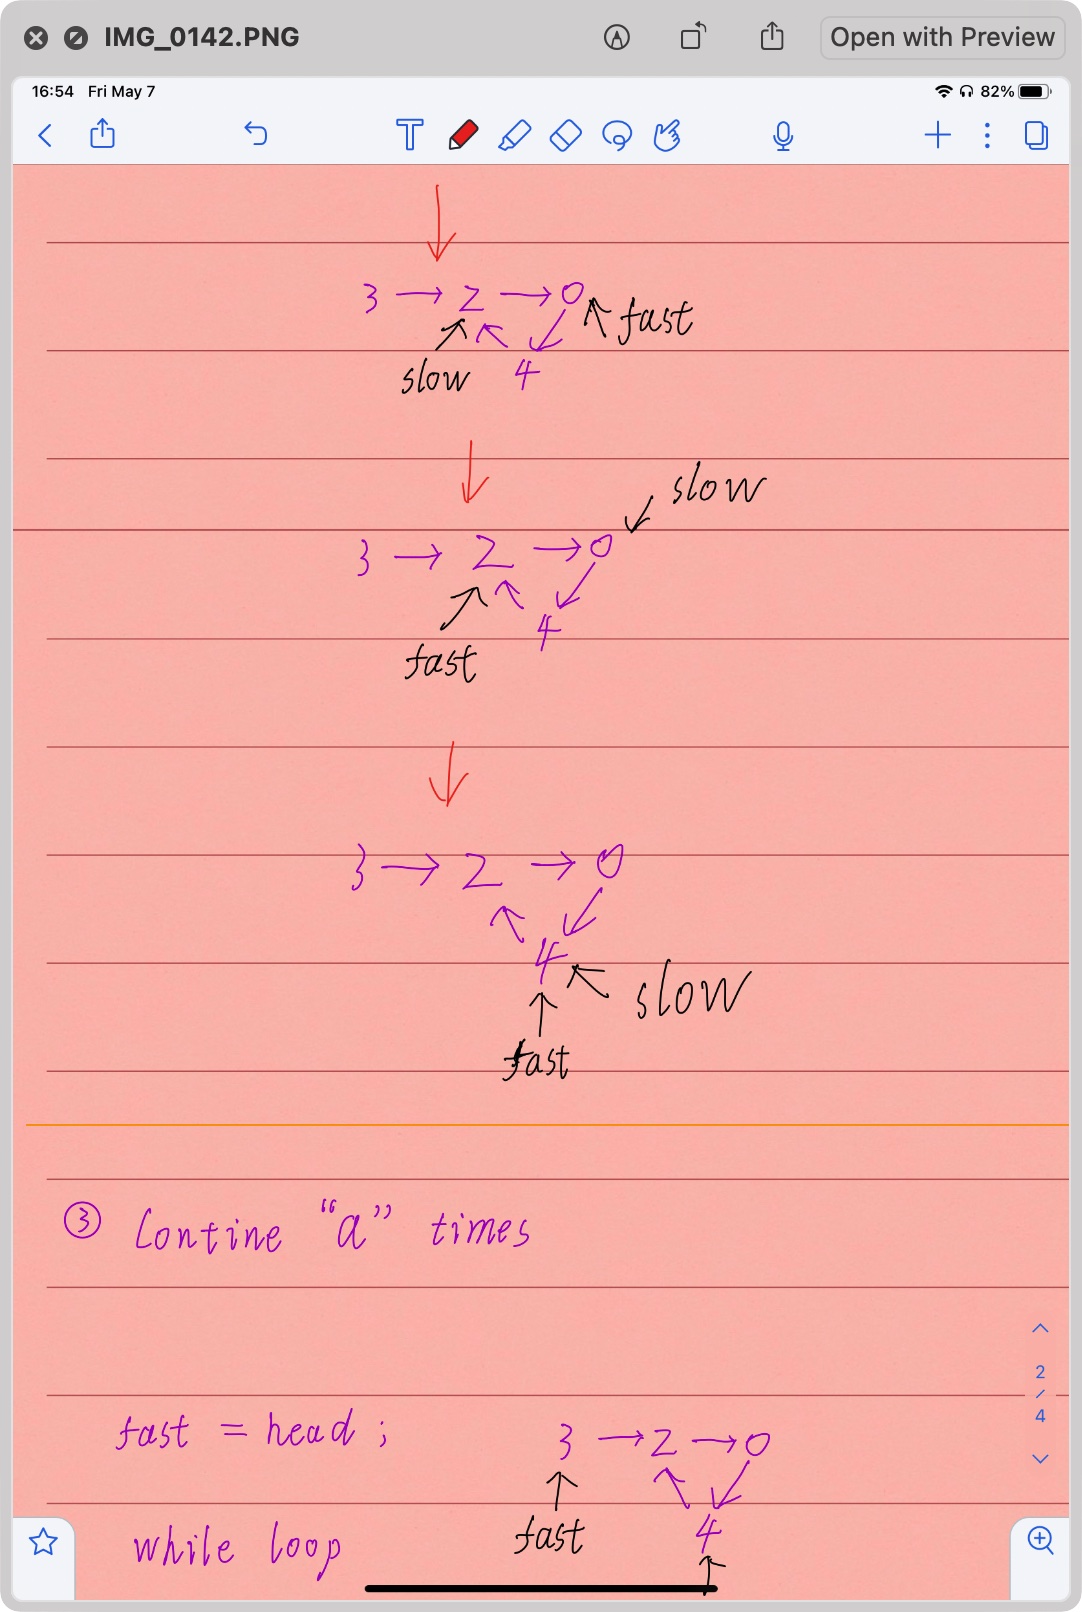 IMG_0142.PNG Open with Preview
16:54 Fri May 7 82%
3 → 2 → 0
fast
slow 4
slow
3 → 2 → 0
4
fast
3 → 2 → 0
4
slow
fast
③ Contine "a" times
2
/
4
fast = head ; 3 → 2 → 0
fast 4
while loop